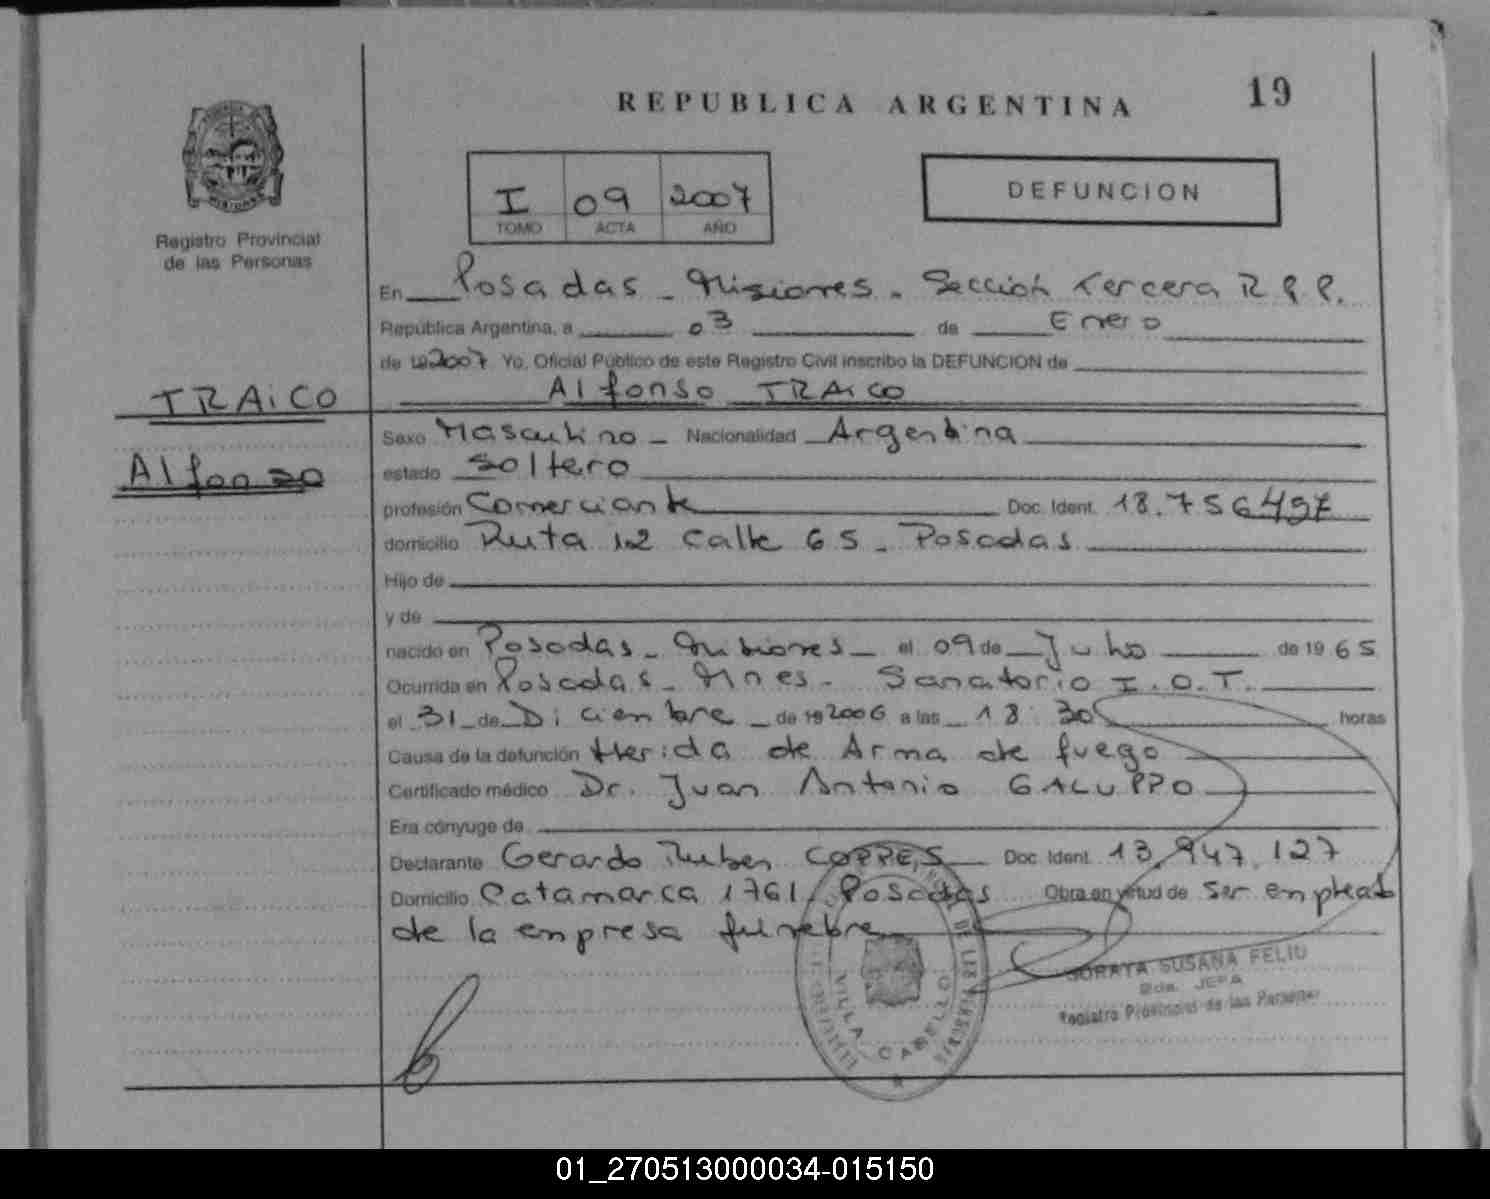 REPUBLICA ARGENTINA
19
I 09 2007
TOMO ACTA AÑO
DEFUNCION
Registro Provincial
de las Personas
En Posadas - Misiones - Sección Tercera R.P.P.
República Argentina, a 03 de Enero
de 192007 Yo, Oficial Público de este Registro Civil inscribo la DEFUNCION de
TRAiCO
Alfonso TRAiCO
Alfonso
Sexo Masculino - Nacionalidad Argentina
estado Soltero
profesión Comerciante Doc. Ident. 18.756497
domicilio Ruta 12 Calle 65 - Posadas
Hijo de
y de
nacido en Posadas - Misiones - el 09 de Julio de 1965
Ocurrida en Posadas - Mnes - Sanatorio I.O.T.
el 31 de Diciembre de 192006 a las 18:30 horas
Causa de la defunción Herida de Arma de fuego
Certificado médico Dr. Juan Antonio GALUPPO
Era cónyuge de
Declarante Gerardo Ruben COPPES Doc. Ident. 13.947.127
Domicilio Catamarca 1761 Posadas Obra en virtud de ser empleado
de la empresa fúnebre
SORAYA SUSANA FELIU
2da. JEFA
Registro Provincial de las Personas
VILLA CABELLO
01_270513000034-015150